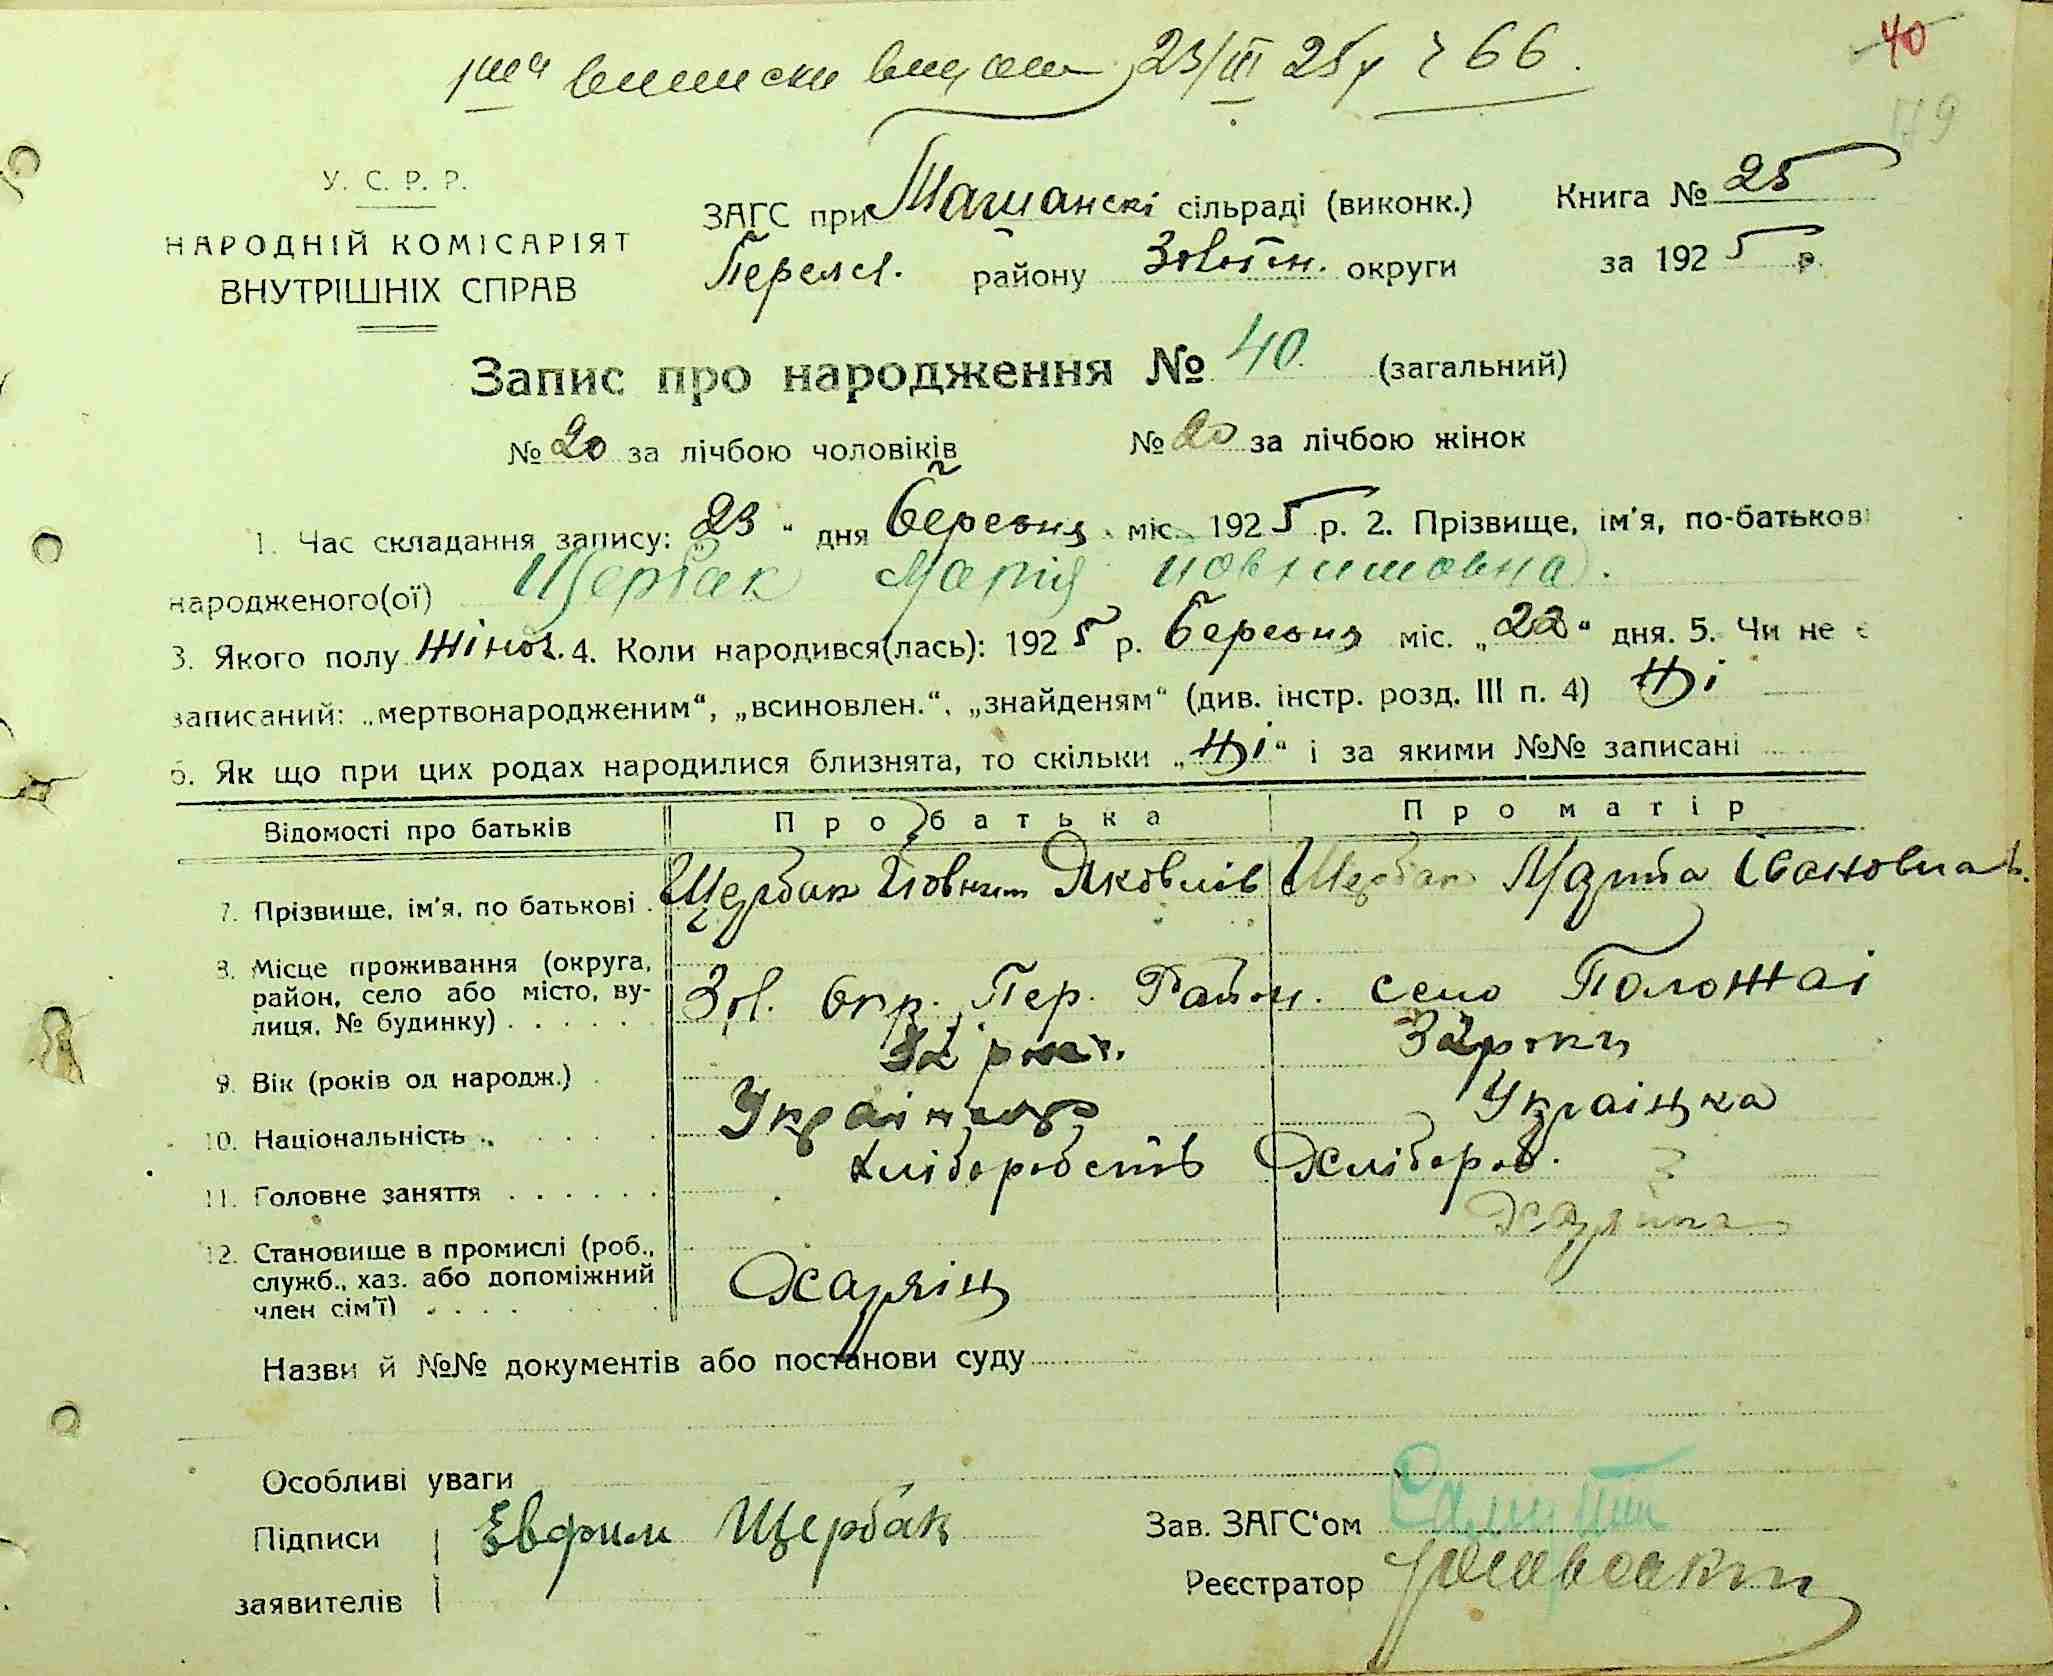 виписки 23/III 25 р № 66.
40
79
У. С. Р. Р.
НАРОДНІЙ КОМІСАРІЯТ
ВНУТРІШНІХ СПРАВ
ЗАГС при Ташанскі сільраді (виконк.) Книга № 25
Переясл. району Золотон. округи за 1925 р.
Запис про народження № 40. (загальний)
№ 20 за лічбою чоловіків № 20 за лічбою жінок
1. Час складання запису: „23“ дня березня міс. 1925 р. 2. Прізвище, ім'я, по-батькові
народженого(ої) Щербак Марія Йовхимовна.
3. Якого полу Жіноч. 4. Коли народився(лась): 1925 р. березня міс. „22“ дня. 5. Чи не є
записаний: „мертвонародженим“, „всиновлен.“, „знайденям“ (див. інстр. розд. III п. 4) Ні
6. Як що при цих родах народилися близнята, то скільки „Ні“ і за якими №№ записані
Відомості про батьків Про батька Про матір
7. Прізвище, ім'я, по батькові Щербак Йовхим Яковлів Щербак Марта Івановна
8. Місце проживання (округа, район, село або місто, вулиця, № будинку) Зол. Окр. Пер. Район. село Положаі
9. Вік (років од народж.) 32 рок. 32 роки
10. Національність Українець Українка
11. Головне заняття хліборобств Хлібороб.
12. Становище в промислі (роб., служб., хаз. або допоміжний член сім'ї) Хазяін Хазяйка
Назви й №№ документів або постанови суду
Особливі уваги
Підписи Евфим Щербак Зав. ЗАГС'ом
заявителів Реєстратор